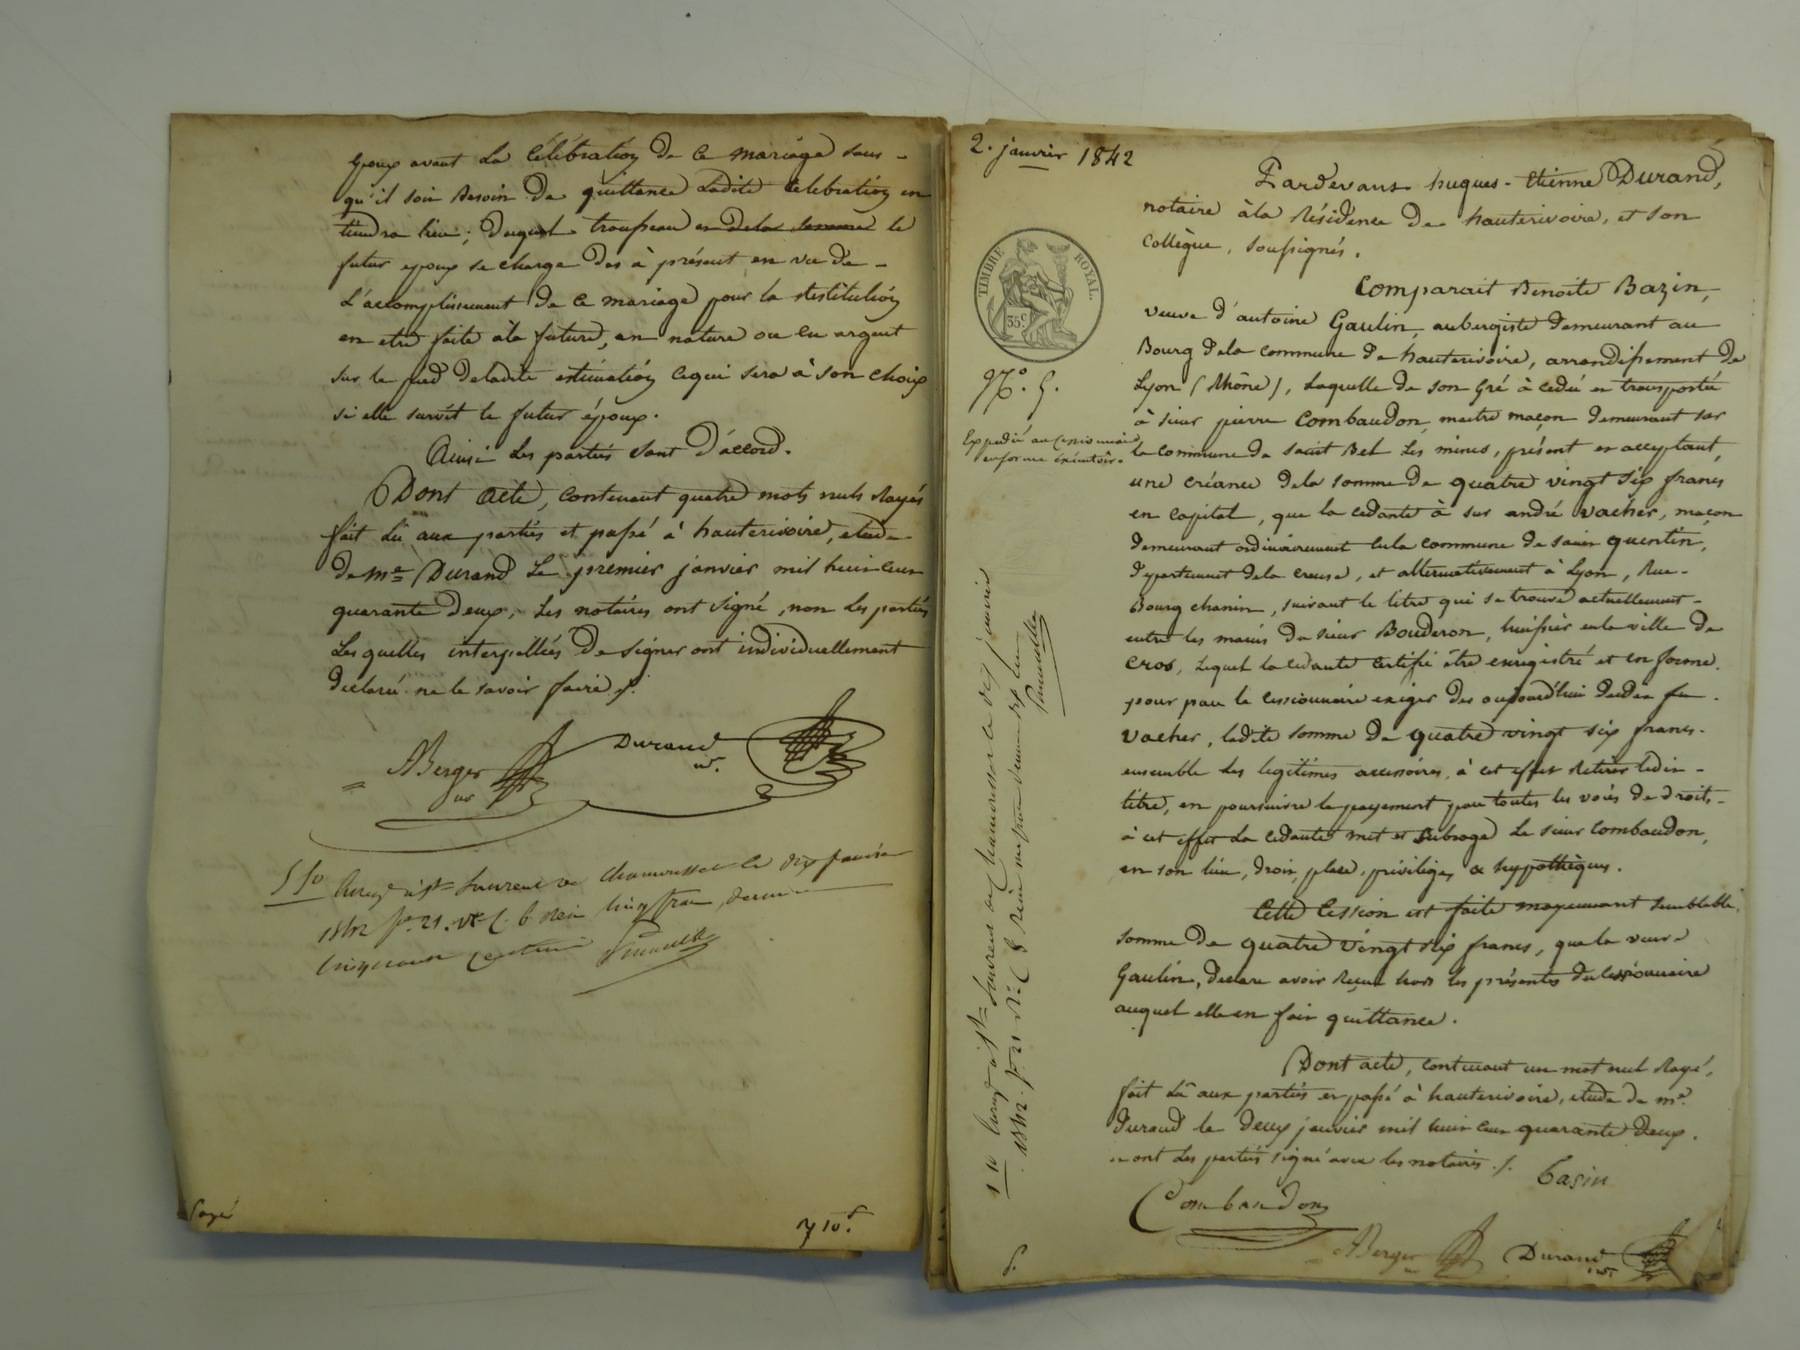 époux avant la Célébration de ce mariage sans -
qu'il soit besoin de quittance ladite célébration en
tiendra lieu; duquel trousseau et dela somme le
futur epoux se charge des à présent en vue de -
L'accomplissement de ce mariage pour la restitution
en etre faite àla future, en nature ou en argent
sur le pied deladite estimation cequi sera à son choix
si elle survit le futur époux.
Ainsi les parties sont d'accord.
Dont acte, contenant quatre mots nuls Rayés
fait lû aux parties et passé à hauterivoire, etude
de me Durand le premier janvier mil huit cent
quarante deux, les notaires ont signé, non les parties
Lesquelles interpellées de signer ont individuellement
declaré ne le savoir faire ./.
ABerger
nre
Durand
nre.
5 10 Enreg à st Laurent de Chamousset le dix janvier
1842 fo. 21. Vo C. 6 Reçu cinq francs, decime
cinquante centimes
payé
7 10 f.
2. janvier 1842
Pardevant hugues - Etienne Durand,
notaire àla Résidence de hauterivoire, et son
Collègue, soussignés.
Comparait Benoite Bazin,
veuve d'antoine Gaulin, aubergiste demeurant au
Bourg dela commune de hauterivoire, arrondissement de
Lyon (Rhône), Laquelle de son gré à cédé et transporté
à sieur pierre Combaudon, maitre maçon demeurant sur
la commune de saint Bel Les mines, présent et acceptant,
une créance dela somme de quatre vingt six francs
en capital, que la cedante à sur andré vacher, maçon
demeurant ordinairement enla commune de saint quentin,
departement dela creuse, et alternativement à Lyon, Rue -
Bourg chanin, suivant le titre qui se trouve actuellement -
entre les mains du sieur Bouderon, huissier enla ville de
cros, lequel la cedante certifie être enregistré et en forme.
pour par le cessionnaire exiger des aujourd'hui dudit
vacher, ladite somme de quatre vingt six francs.
ensemble les legitimes accessoires, à cet effet retirer ledit -
titre, en poursuivre le payement par toutes les voies de droit, -
à cet effet la cedante met et subroge le sieur Combaudon,
en son lieu, droit, place, privilèges & hypothèques.
Cette Cession est faite moyennant semblable
somme de quatre vingt six francs, que la veuve
Gaulin, declare avoir reçue hors les présentes du cessionnaire
auquel elle en fait quittance.
Dont acte, contenant un mot nul Rayé,
fait lû aux parties et passé à hauterivoire, etude de me.
durand le deux janvier mil huit cent quarante deux.
et ont les parties signé avec les notaires ./.
basin
Combaudon
ABerger
Durand
nre
TIMBRE ROYAL.
35 c
No. 5.
Expedié au Cessionnaire
en forme exécutoire.
1 10 Enreg à st Laurent de Chamousset le dix janvier
1842. fo. 21 Vo C 8 Reçu un franc decime dix cent